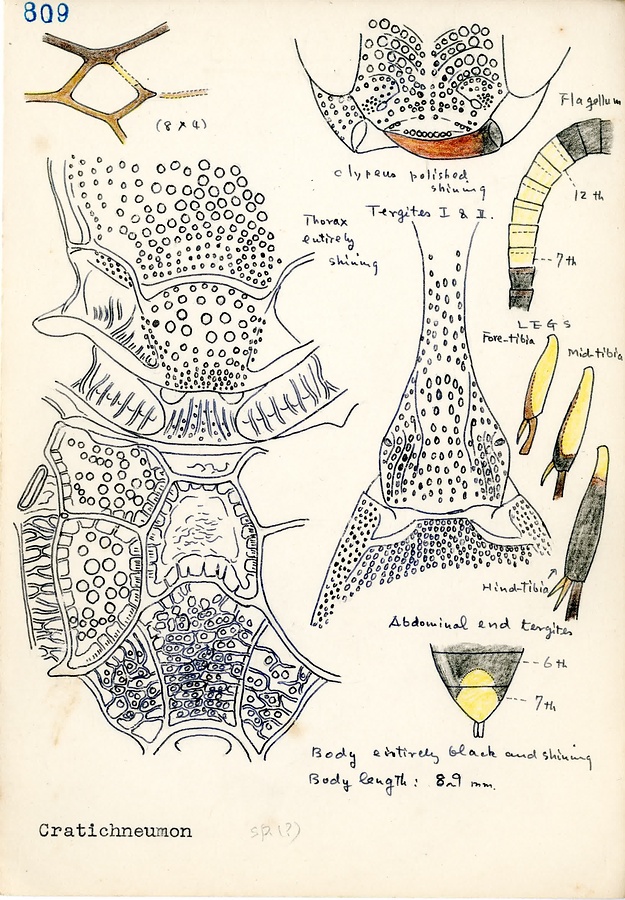 809
Flagellum
(8 x 4)
clypeus polished
shining
12 th
Thorax
entirely
shining
Tergites I & II.
7 th
LEGS
Fore-tibia
Mid-tibia
Hind-tibia
Abdominal end tergites
6 th
7 th
Body entirely black and shining
Body length: mm.
Cratichneumon sp.(?)